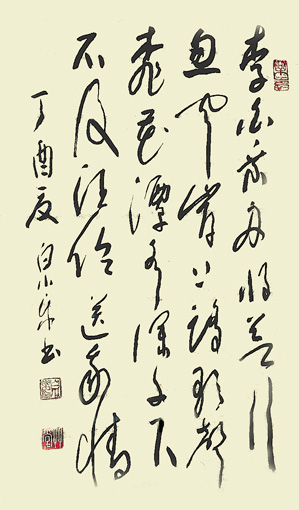 李白乘舟将欲行
忽闻岸上踏歌声
桃花潭水深千尺
不及汪伦送我情
丁酉夏 白小乐书